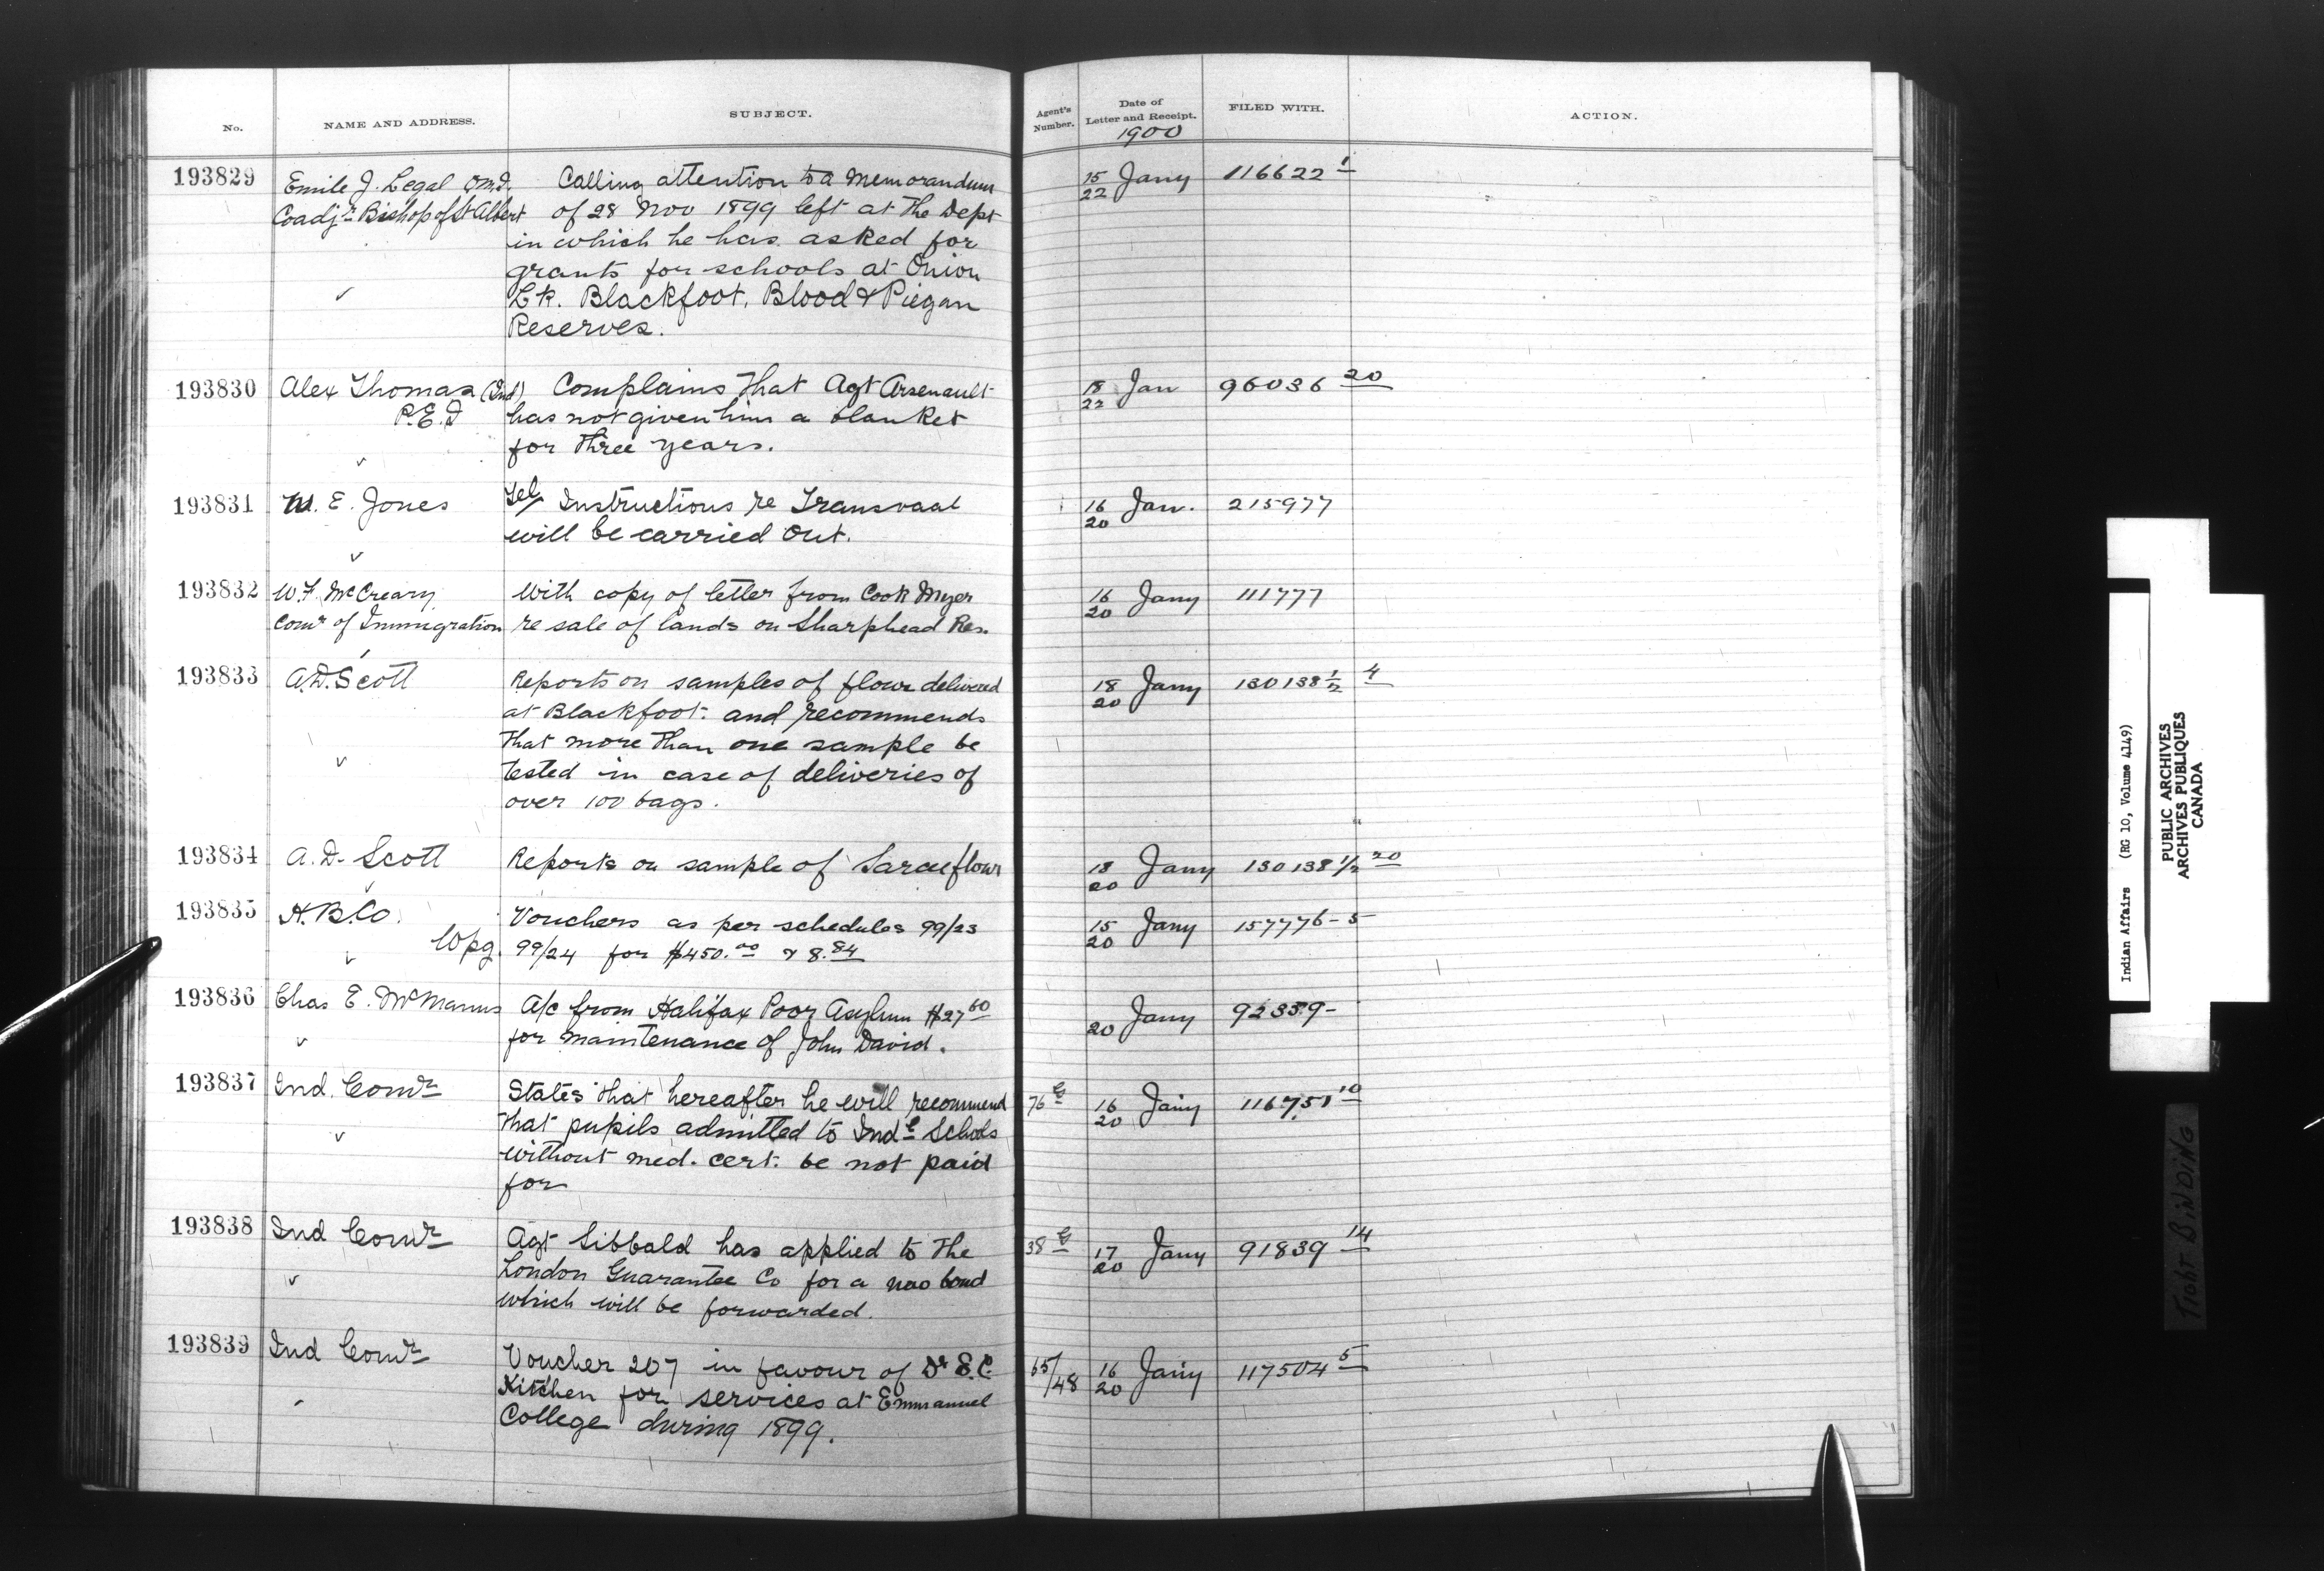 No. NAME AND ADDRESS. SUBJECT. Agent's Number. Date of Letter and Receipt. FILED WITH. ACTION.
1900
193829 Emile J. Legal O.M.I. Calling attention to a memorandum 15/22 Jany 116622 1
Coadjr Bishop of St Albert of 28 Nov 1899 left at the Dept
in which he has asked for
grants for schools at Onion
Lk. Blackfoot, Blood & Piegan
Reserves.
193830 Alex Thomas (Ind) Complains that Agt Arsenault 18/22 Jan 96036 20
P.E.I has not given him a blanket
for three years.
193831 M. E. Jones Tel/ Instructions re Transvaal 16/20 Jan. 215977
will be carried out.
193832 W.F. McCreary With copy of letter from Cook Myer 16/20 Jany 111777
Comr of Immigration re sale of lands on Sharphead Res.
193833 A.D. Scott Reports on samples of flour delivered 18/20 Jany 130138 1/2 4
at Blackfoot. and recommends
that more than one sample be
tested in case of deliveries of
over 100 bags.
193834 A. D. Scott Reports on sample of Sarcee flour 18/20 Jany 130138 1/2 20
193835 H.B.Co. Vouchers as per schedules 99/23 15/20 Jany 157776-5
Wpg. 99/24 for $450.00 & 8.84
193836 Chas E. McManus A/c from Halifax Poor Asylum $27 60 20 Jany 92339-
for maintenance of John David.
193837 Ind. Comr States that hereafter he will recommend 76 16/20 Jany 116751 10
that pupils admitted to Indl Schools
without med. cert. be not paid
for
193838 Ind Comr Agt Sibbald has applied to the 38 17/20 Jany 91839 14
London Guarantee Co for a new bond
which will be forwarded.
193839 Ind Comr Voucher 207 in favour of Dr S.C. 65/48 16/20 Jany 117504 5
Kitchen for services at Emmanuel
College during 1899.
Indian Affairs (RG 10, Volume 4149)
PUBLIC ARCHIVES
ARCHIVES PUBLIQUES
CANADA
TIGHT BINDING